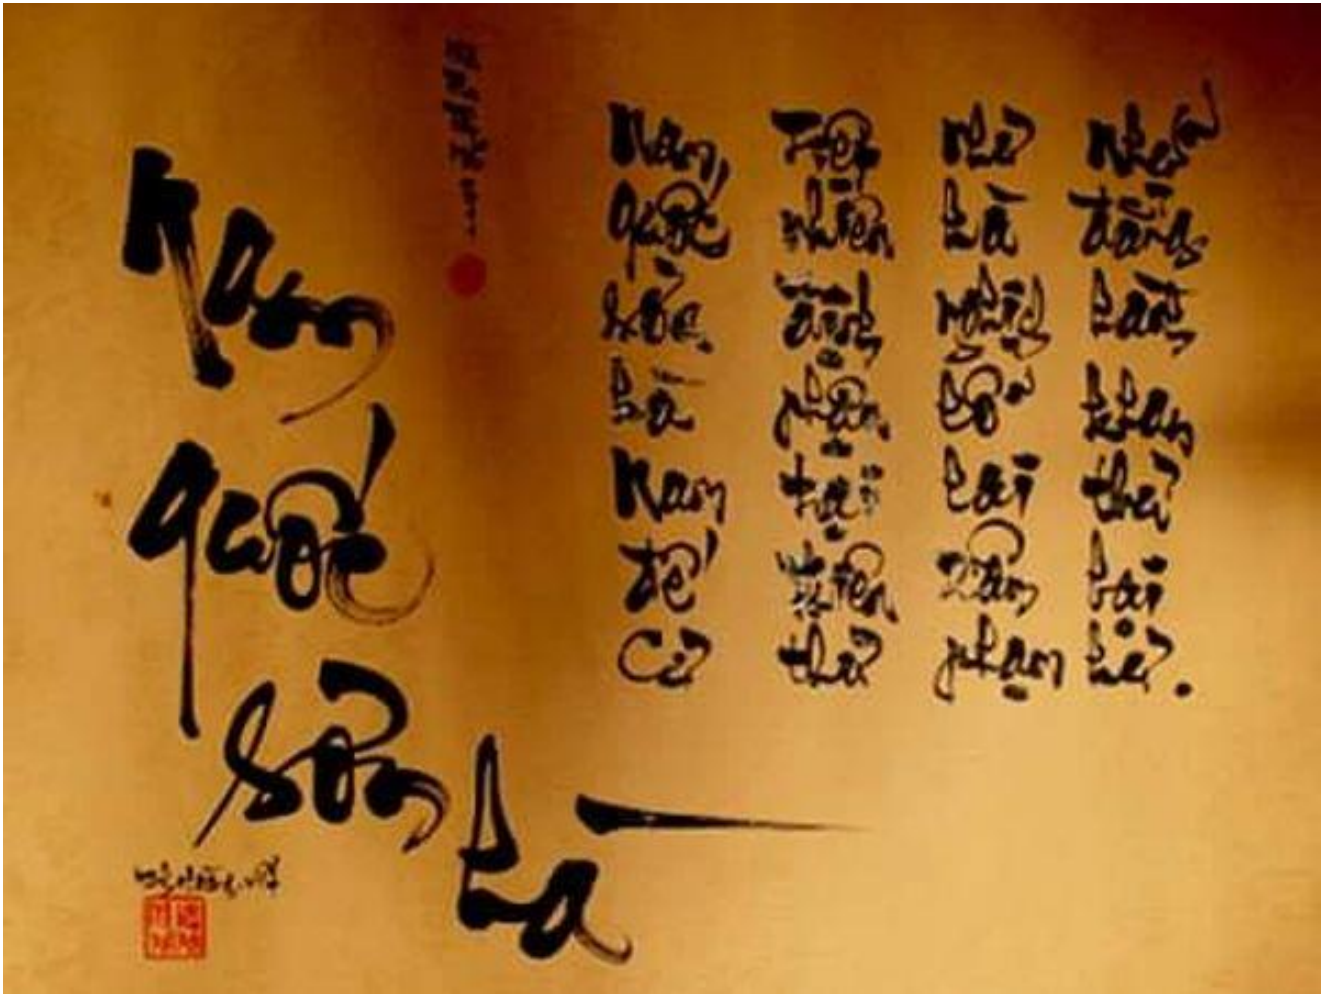 Nam
quốc
sơn
hà
Nam quốc sơn hà Nam đế Cư
Tiệt nhiên định phận tại thiên thư
như hà nghịch lỗ lai xâm phạm
Nhữ đẳng hành khan thủ bại hư.